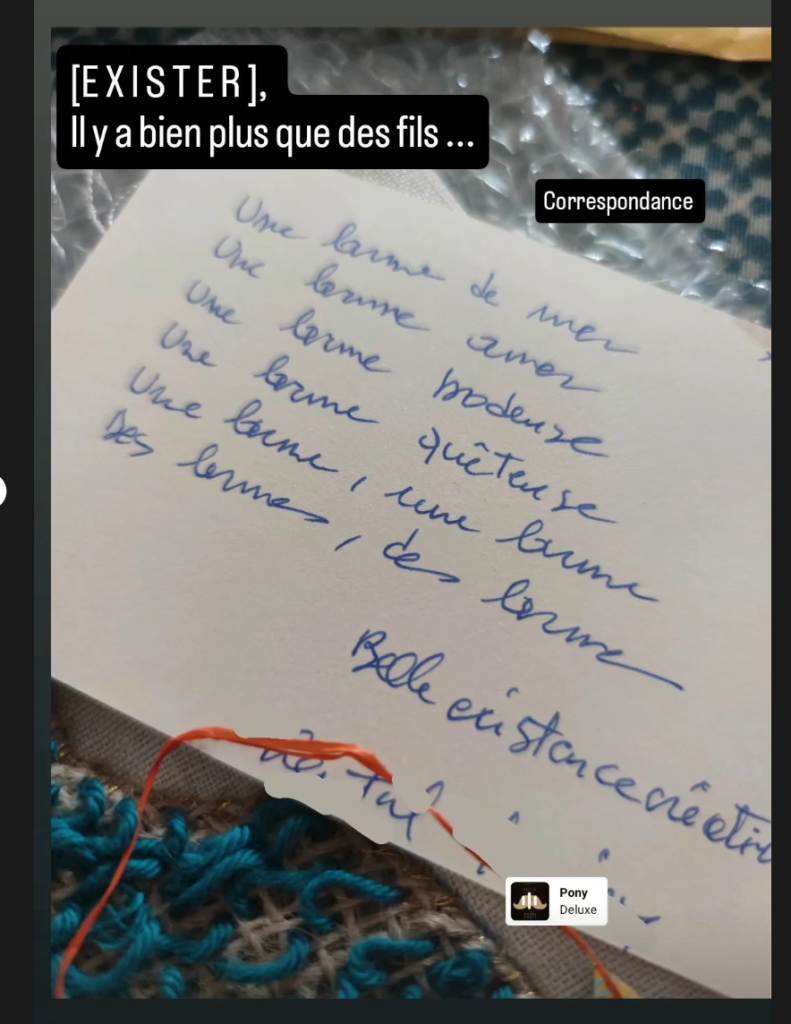 [EXISTER],
Il y a bien plus que des fils ...
Correspondance
Une larme de mer
Une larme amer
Une larme brodeuse
Une larme quêteuse
Une larme, une larme
Des larmes, des larmes
Belle existence
Pony
Deluxe